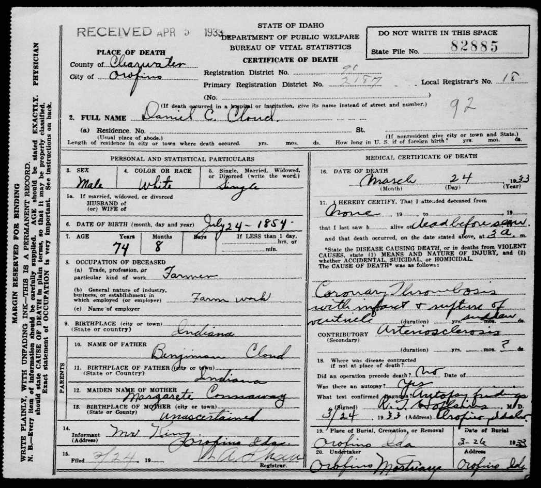 RECEIVED APR 5 1933
STATE OF IDAHO
DEPARTMENT OF PUBLIC WELFARE
BUREAU OF VITAL STATISTICS
CERTIFICATE OF DEATH
DO NOT WRITE IN THIS SPACE
State File No. 82885
PLACE OF DEATH
County of Clearwater
City of Orofino
Registration District No.
Primary Registration District No.
Local Registrar's No. 18
(No.
(If death occurred in a hospital or institution, give its name instead of street and number.)
92
2. FULL NAME Daniel C. Cloud
(a) Residence. No.
(Usual place of abode.)
(If nonresident give city or town and State.)
Length of residence in city or town where death occurred yrs. mos. ds. How long in U. S. if of foreign birth? yrs. mos. ds.
PERSONAL AND STATISTICAL PARTICULARS
3. SEX
Male
4. COLOR OR RACE
White
5. Single, Married, Widowed, or Divorced (write the word.)
Single
5a. If married, widowed, or divorced
HUSBAND of
(or) WIFE of
6. DATE OF BIRTH (month, day and year) July 24 - 1854
7. AGE Years Months Days If LESS than 1 day, hrs. or min.
8
8. OCCUPATION OF DECEASED
(a) Trade, profession, or particular kind of work Farmer
(b) General nature of industry, business, or establishment in which employed (or employer) Farm work
(c) Name of employer
9. BIRTHPLACE (city or town)
(State or Country) Indiana
PARENTS
10. NAME OF FATHER
Benjiman Cloud
11. BIRTHPLACE OF FATHER (city or town)
(State or Country) Indiana
12. MAIDEN NAME OF MOTHER
Margarete Connaway
13. BIRTHPLACE OF MOTHER (city or town)
(State or Country) Unascertained
14. Informant Mr King
(Address) Orofino Ida.
15. Filed 3/24 19
Registrar.
MEDICAL CERTIFICATE OF DEATH
16. DATE OF DEATH
March 24 1933
(Month) (Day) (Year)
17. I HEREBY CERTIFY, That I attended deceased
from None 19 to 19
that I last saw h alive Dead before seen
and that death occurred, on the date stated above, at 3 a. m.
*State the DISEASE CAUSING DEATH, or in deaths from VIOLENT CAUSES, state (1) MEANS AND NATURE OF INJURY, and (2) whether ACCIDENTAL, SUICIDAL, or HOMICIDAL.
THE CAUSE OF DEATH* was as follows:
Coronary Thrombosis
with infarct & rupture of
ventricle (duration) yrs. sudden ds.
CONTRIBUTORY Arteriosclerosis
(Secondary)
(duration) yrs. mos. ? ds.
18. Where was disease contracted
if not at place of death?
Did an operation precede death? No
Was there an autopsy? Yes
What test confirmed diagnosis? Autopsy findings
(Signed) M. D.
3/24 1933 (Address) Orofino, Idaho
19. Place of Burial, Cremation, or Removal Date of Burial
Orofino Ida 3-26 1933
20. Undertaker Address
Orofino Mortuary Orofino Ida
MARGIN RESERVED FOR BINDING
WRITE PLAINLY, WITH UNFADING INK—THIS IS A PERMANENT RECORD.
N. B.—Every item of information should be carefully supplied. AGE should be stated EXACTLY. PHYSICIAN
should state CAUSE OF DEATH in plain terms, so that it may be properly classified.
Exact statement of OCCUPATION is very important. See instructions on back.